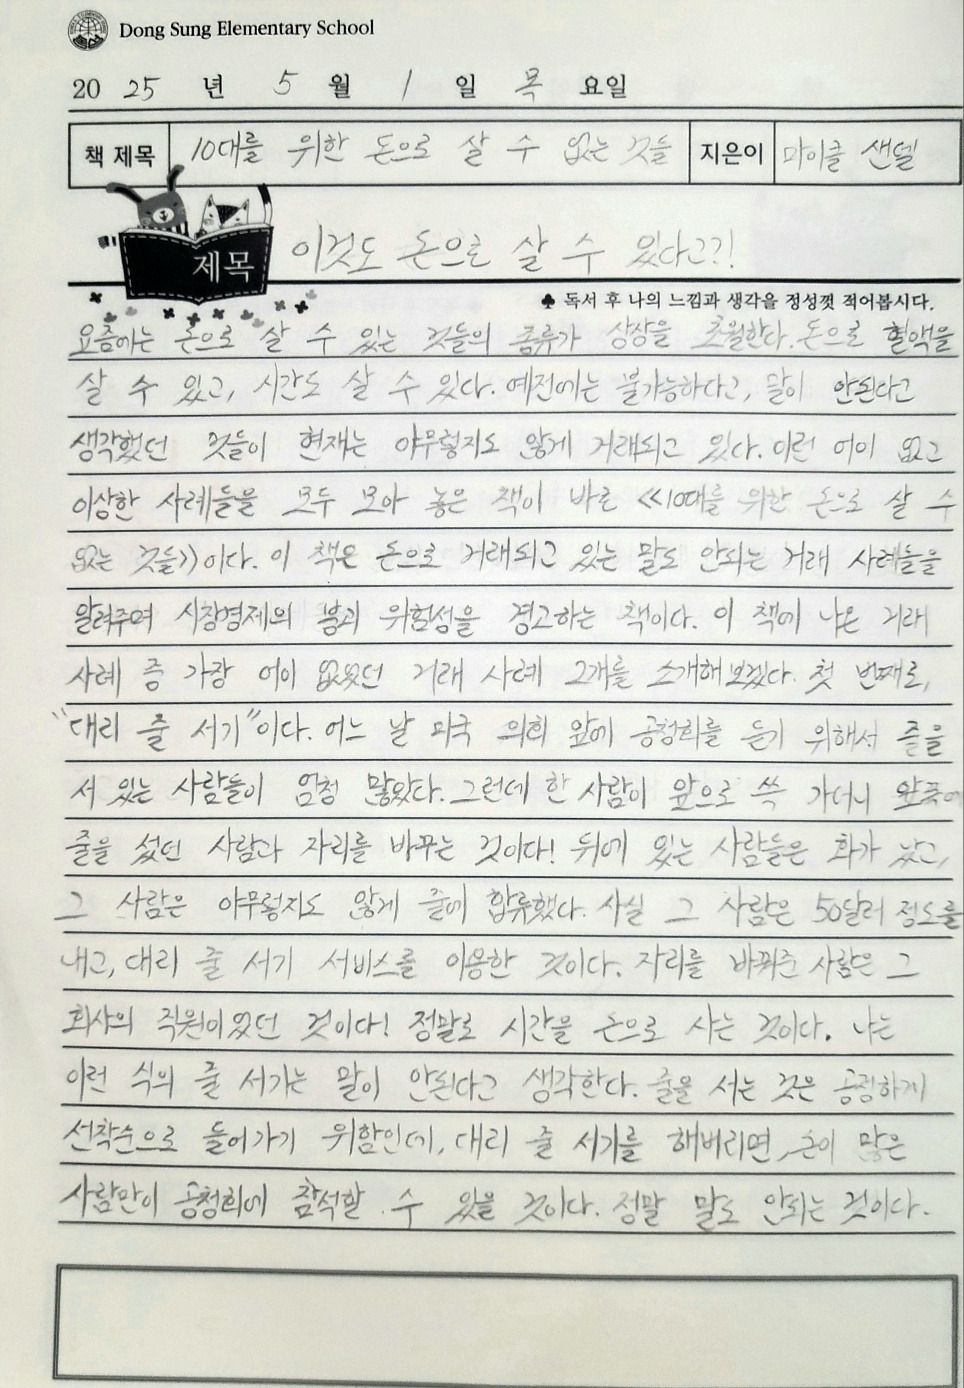 Dong Sung Elementary School
20 25 년 5 월 1 일 목 요일
책 제목 10대를 위한 돈으로 살 수 없는 것들 지은이 마이클 샌델
제목 이것도 돈으로 살 수 있다고?!
♣ 독서 후 나의 느낌과 생각을 정성껏 적어봅시다.
요즘에는 돈으로 살 수 있는 것들의 종류가 상상을 초월한다. 돈으로 혈액을
살 수 있고, 시간도 살 수 있다. 예전에는 불가능하다고, 말이 안된다고
생각했던 것들이 현재는 아무렇지도 않게 거래되고 있다. 이런 어이 없고
이상한 사례들을 모두 모아 놓은 책이 바로 <<10대를 위한 돈으로 살 수
없는 것들>>이다. 이 책은 돈으로 거래되고 있는 말도 안되는 거래 사례들을
알려주며 시장경제의 위험성을 경고하는 책이다. 이 책에 나온 거래
사례 중 가장 어이 없었던 거래 사례 2개를 소개해 보겠다. 첫 번째로,
"대리 줄 서기"이다. 어느 날 미국 의회 앞에 공청회를 듣기 위해서 줄을
서 있는 사람들이 엄청 많았다. 그런데 한 사람이 앞으로 쓱 가더니 앞쪽에
줄을 섰던 사람과 자리를 바꾸는 것이다! 뒤에 있는 사람들은 화가 났고,
그 사람은 아무렇지도 않게 줄에 합류했다. 사실 그 사람은 50달러 정도를
내고, 대리 줄 서기 서비스를 이용한 것이다. 자리를 바꿔준 사람은 그
회사의 직원이었던 것이다! 정말로 시간을 돈으로 사는 것이다. 나는
이런 식의 줄 서기는 말이 안된다고 생각한다. 줄을 서는 것은 공평하게
선착순으로 들어가기 위함인데, 대리 줄 서기를 해버리면, 돈이 많은
사람만이 공청회에 참석할 수 있을 것이다. 정말 말도 안되는 것이다.